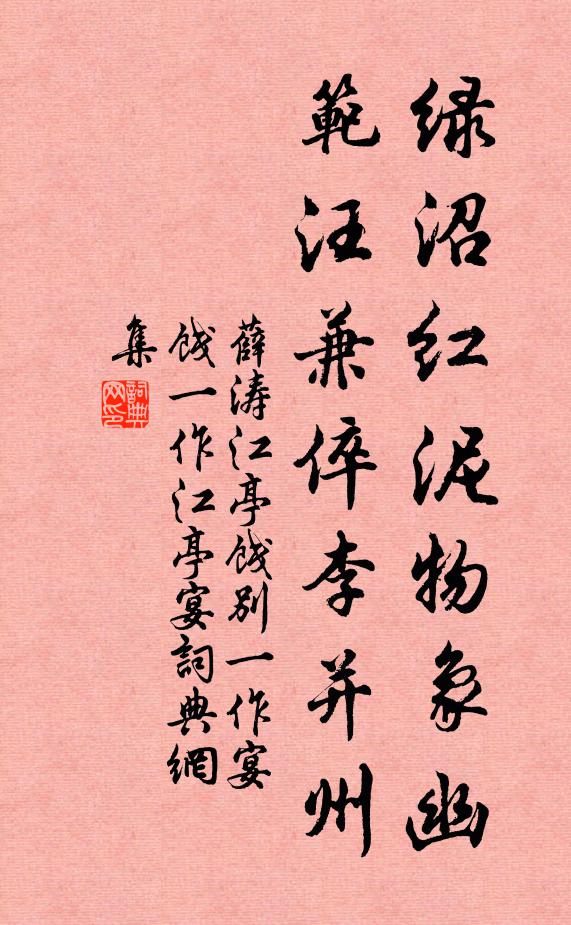 绿沼红泥物象幽
範汪兼倅李并州
薛涛江亭餞别一作宴
餞一作江亭宴詞典網
集
詞典網印